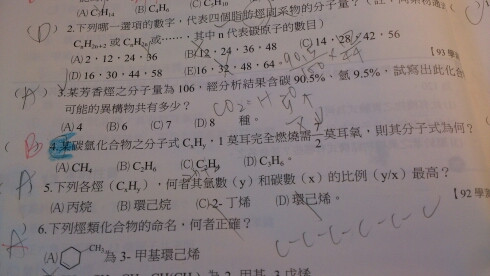 (A) C₇H₁₄ (B) C₆H₁₀
(D) 2.下列哪一選項的數字，代表四個脂肪烴同系物的分子量？
CₙH₂ₙ₊₂ 或 CₙH₂ₙ 或……，其中 n 代表碳原子的數目)
(A) 2、12、24、36 (B) 12、24、36、48 (C) 14、28、42、56
(D) 16、30、44、58 (E) 16、32、48、64。 【93 學
(A) 3.某芳香烴之分子量為 106，經分析結果含碳 90.5%、氫 9.5%，試寫出此化合
可能的異構物共有多少？
(A) 4 (B) 6 (C) 7 (D) 8 種。
(B) 4.某碳氫化合物之分子式 CₓHᵧ，1 莫耳完全燃燒需 7/2 莫耳氧，則其分子式為何？
(A) CH₄ (B) C₂H₆ (C) C₂H₄ (D) C₃H₈。
A 5.下列各烴 (CₓHᵧ)，何者其氫數（y）和碳數（x）的比例（y/x）最高？
(A) 丙烷 (B) 環己烷 (C) 2- 丁烯 (D) 環己烯。 【92 學
A )6.下列烴類化合物的命名，何者正確？
(A) CH₃ 為 3- 甲基環己烯